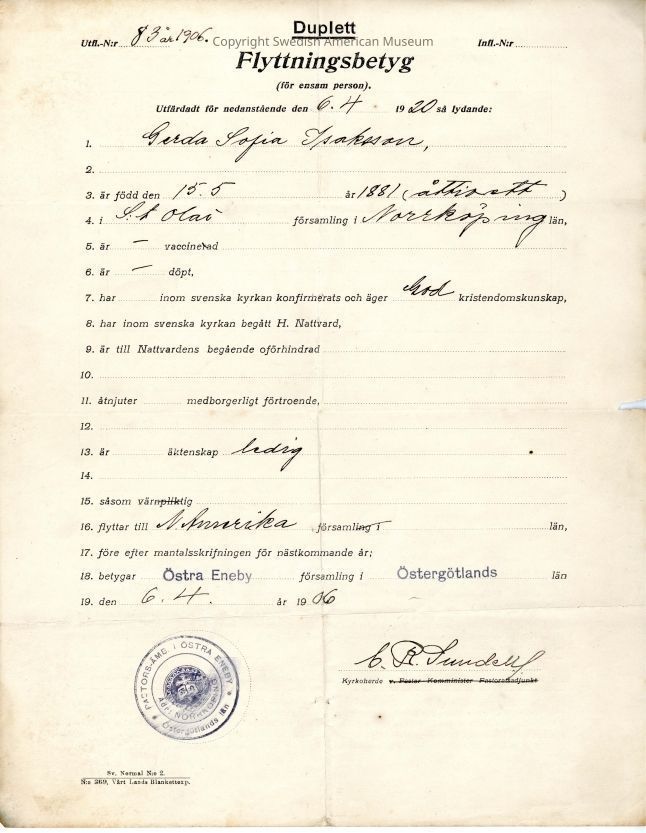 Duplett
Utfl.-N:r 83 år 1906. Infl.-N:r
Copyright Swedish American Museum
Flyttningsbetyg
(för ensam person).
Utfärdadt för nedanstående den 6.4 1920 så lydande:
1. Gerda Sofia Isaksson,
2.
3. är född den 15.5 år 1881 (åttioett)
4. i S:t Olai församling i Norrköping län,
5. är — vaccinerad
6. är — döpt,
7. har inom svenska kyrkan konfirmerats och äger God kristendomskunskap,
8. har inom svenska kyrkan begått H. Nattvard,
9. är till Nattvardens begående oförhindrad
10.
11. åtnjuter medborgerligt förtroende,
12.
13. är äktenskap ledig
14.
15. såsom värnpliktig
16. flyttar till N. Amerika församling i län,
17. före efter mantalsskrifningen för nästkommande år;
18. betygar Östra Eneby församling i Östergötlands län
19. den 6.4. år 1906
PASTORS-ÄMB. I ÖSTRA ENEBY
Adr. NORRKÖPING
Östergötlands län
C. R. Sundell
Kyrkoherde v. Pastor Komminister Pastoratsadjunkt
Sv. Normal N:o 2.
N:o 269, Vårt Lands Blankettexp.